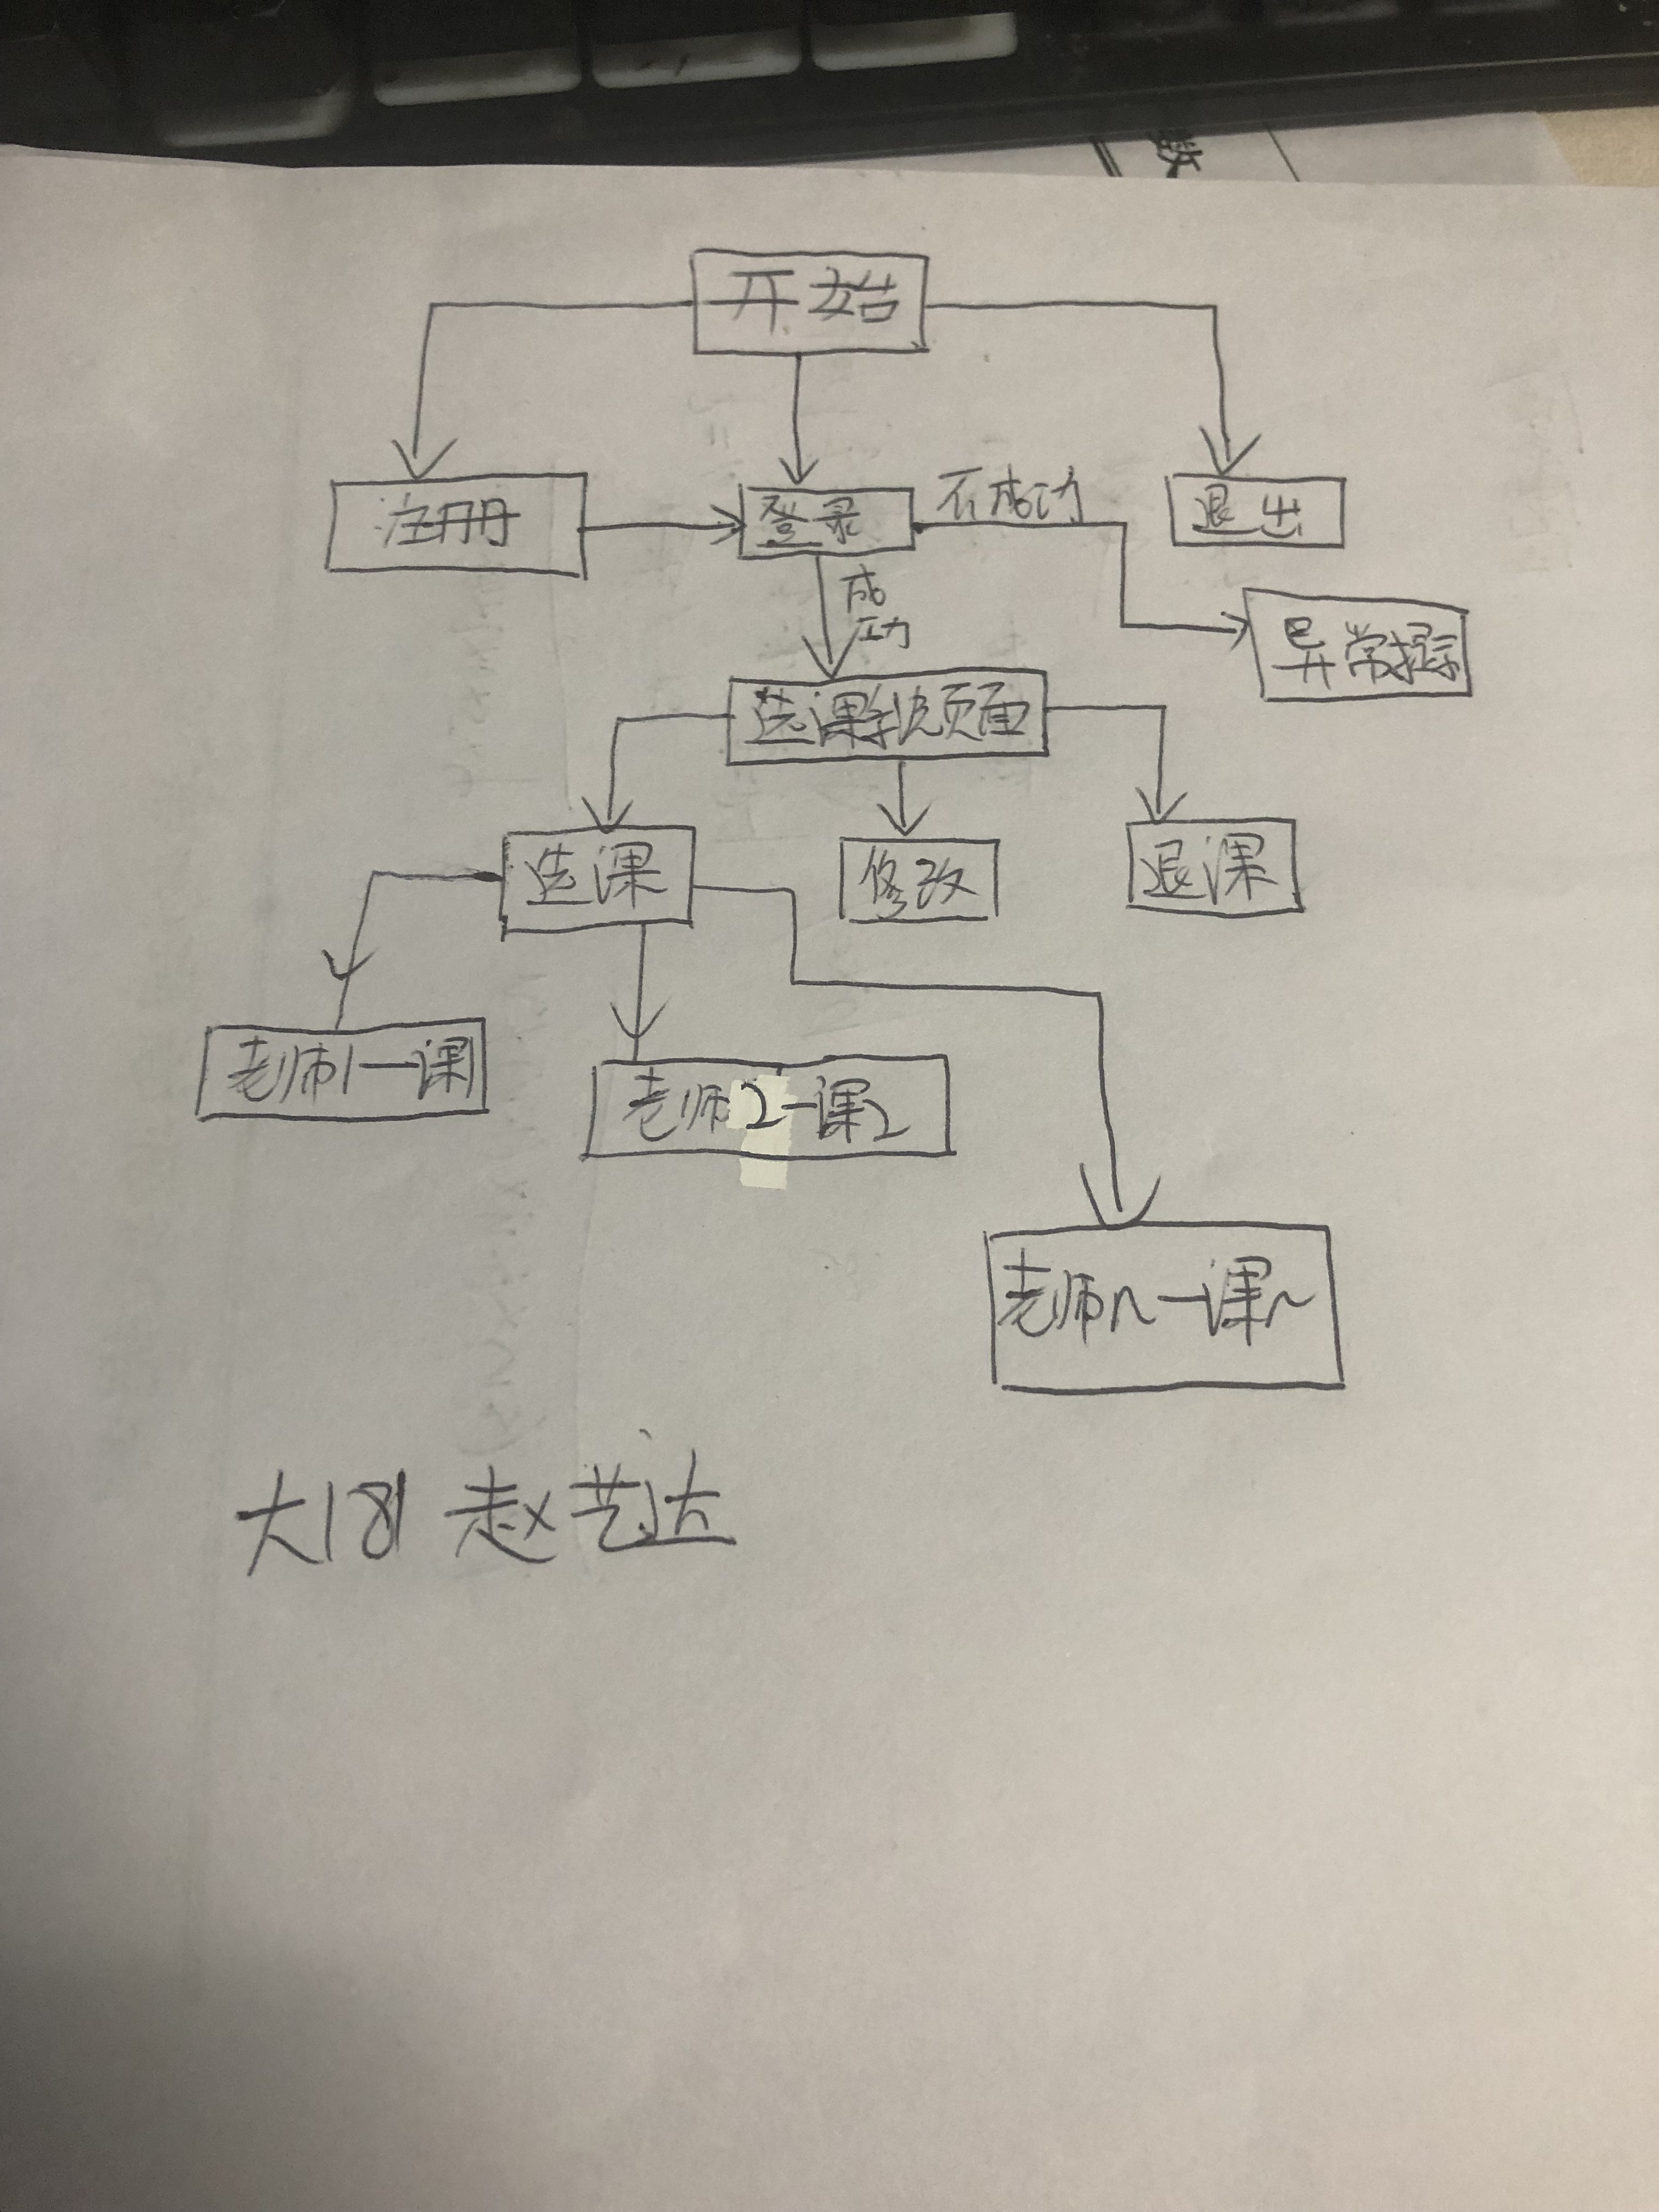 开始
注册
登录
不成功
退出
成功
异常提示
选课系统页面
选课
修改
退课
老师1一课1
老师2一课2
老师n一课n
大181 赵艺达